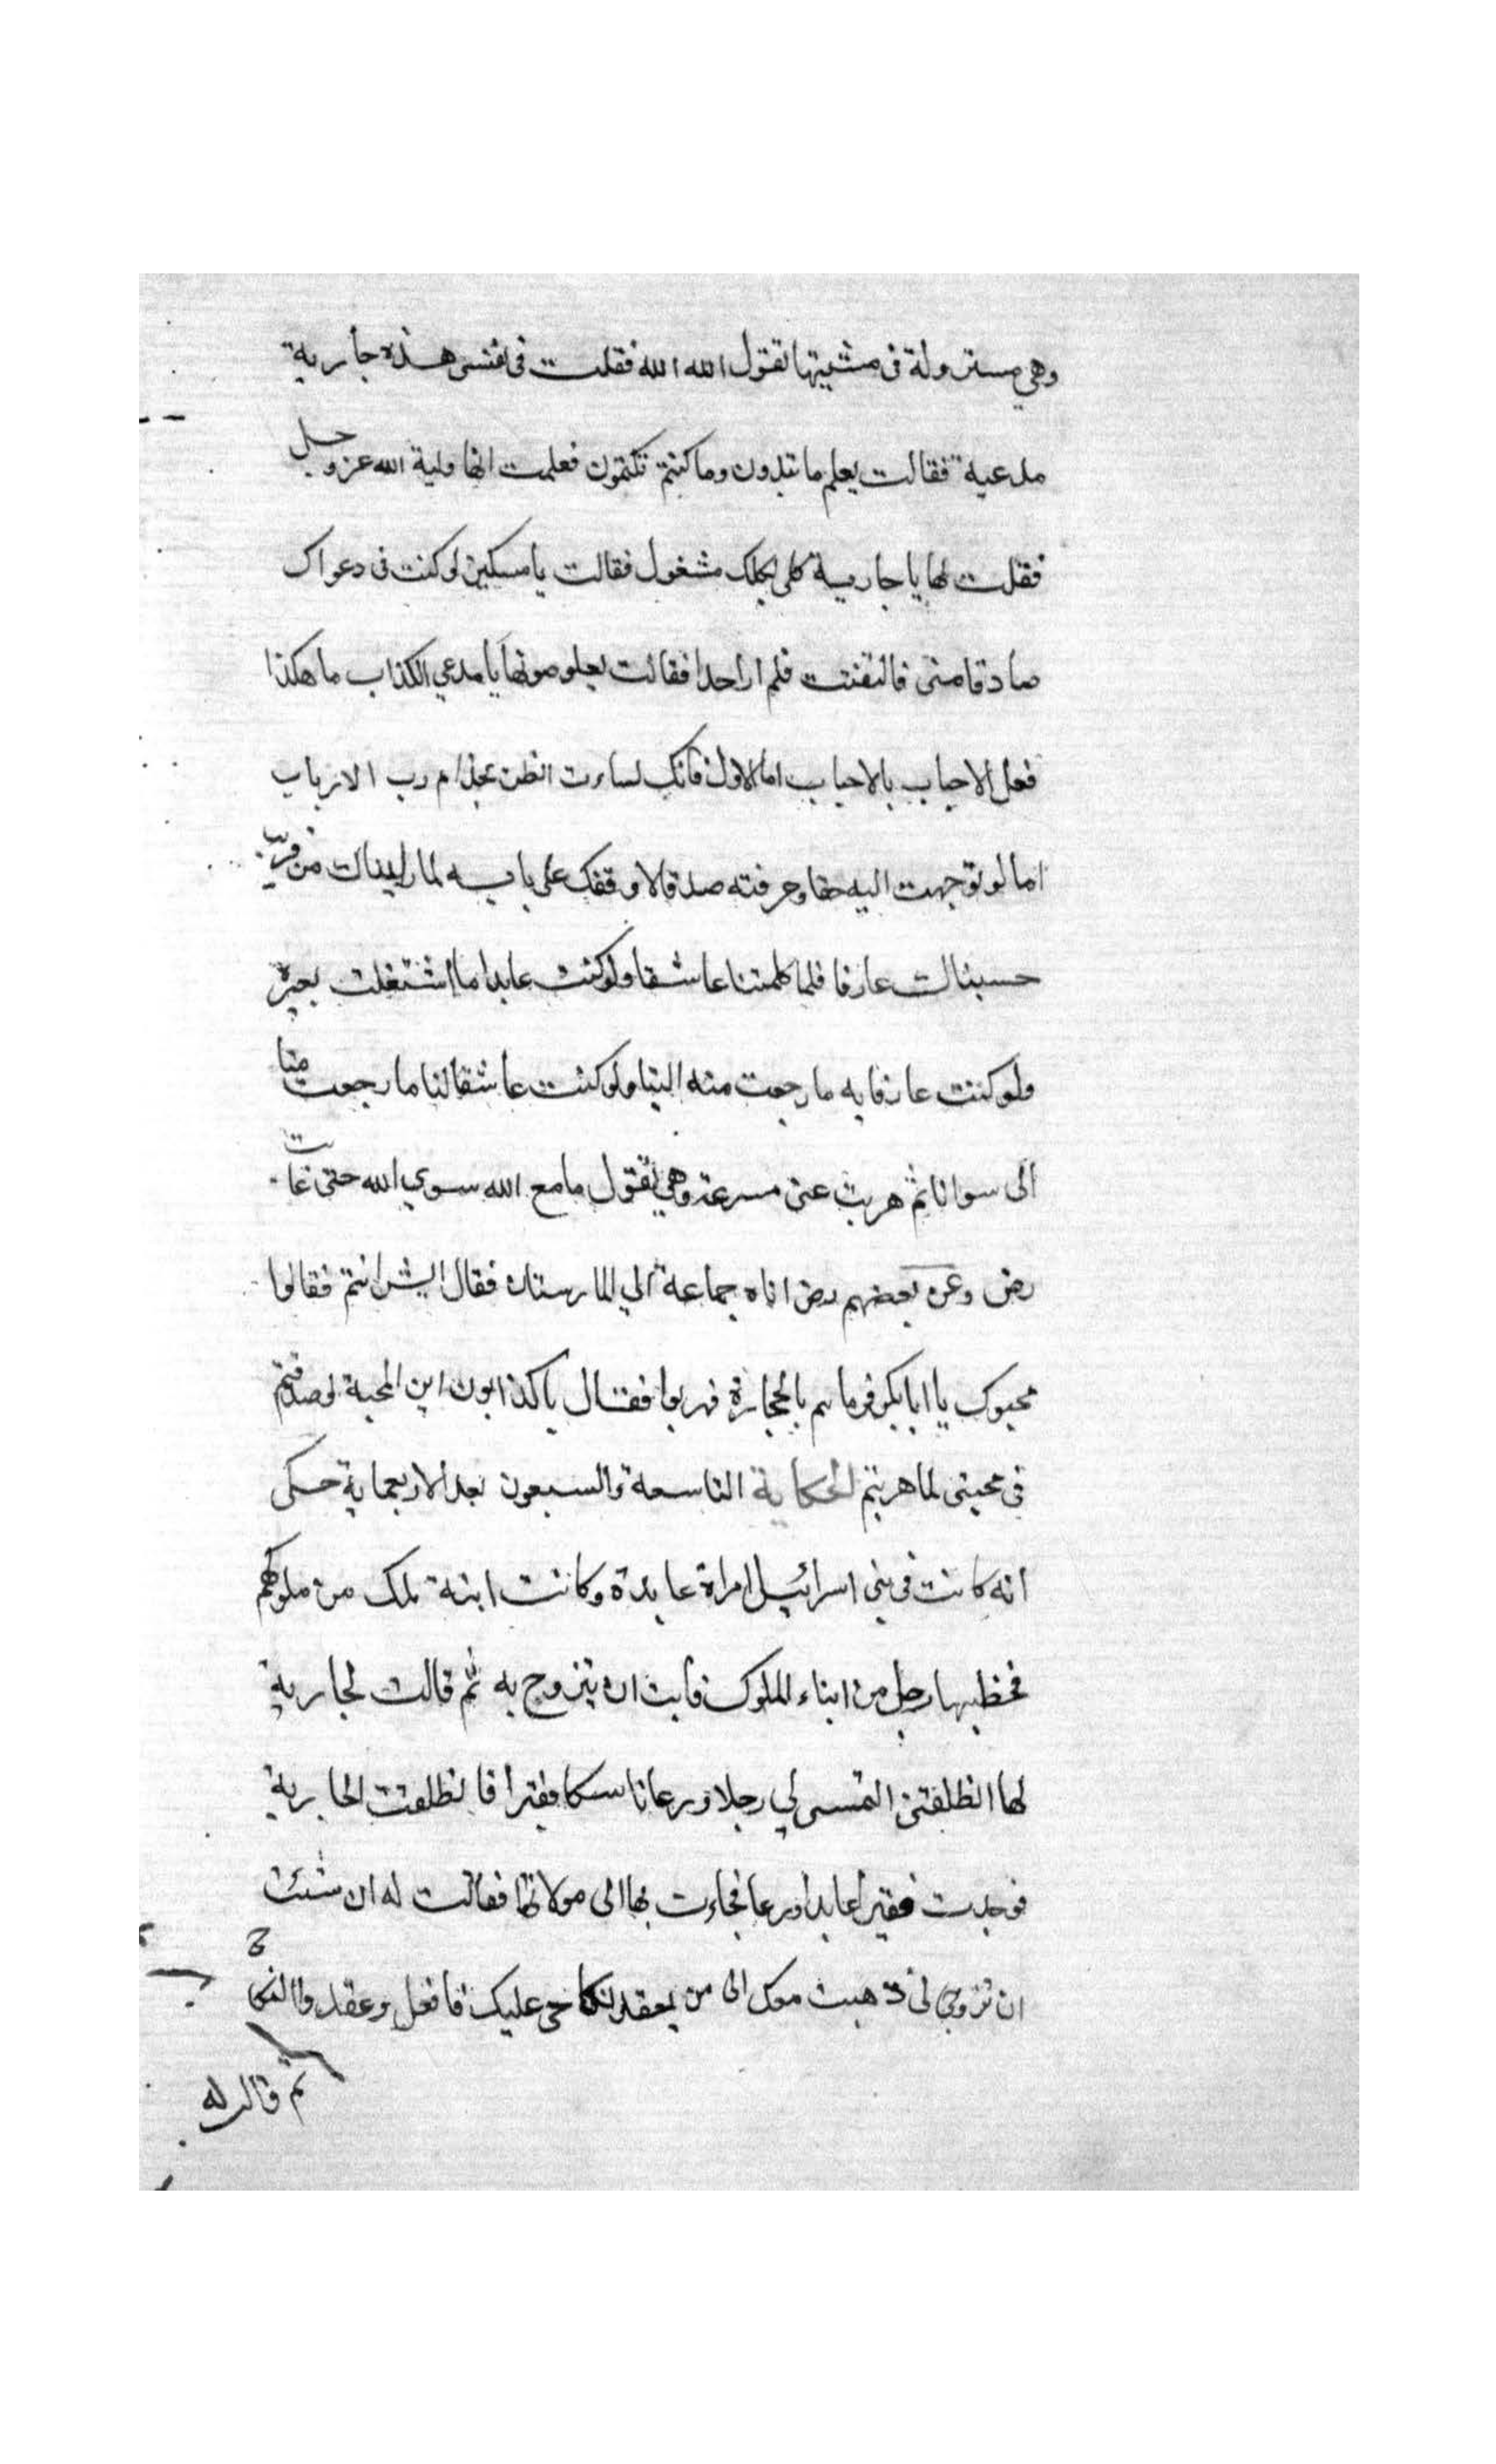 وهي مستزولة في مشيتها تقول الله الله فقلت في نفسي هذه جارية
مدعية فقالت يعلم ما تبدون وما كنتم تكتمون فعلمت انها ولية الله عز وجل
فقلت لها يا جارية كلي بكلك مشغول فقالت يا مسكين لو كنت في دعواك
صادقا مني فالتفتت فلم ار احدا فقالت بعلو صوتها يا مدعي الكذاب ما هكذا
فعل الاحباب بالاحباب اما الاول فانك اساءت الظن بخدام رب الارباب
اما لو توجهت اليه حقا وعرفته صدقا لاوقفك على بابه لما رايناك من قريب
حسبناك عارفا فلما كلمتنا عاشقا ولو كنت عابدا ما اشتغلت بغيره
ولو كنت عارفا به ما رجعت منه الينا ولو كنت عاشقا لنا ما رجعت منا
الى سوانا ثم هربت عني مسرعة وهي تقول ما مع الله سوى الله حتى غابت
رض وعن بعضهم رض اتاه جماعة الي المارستان فقال ايش انتم فقالوا
محبوك يا ابا بكر فرماهم بالحجارة فهربوا فقال يا كذابون اين المحبة لو صدقتم
في محبتي لما هربتم الحكاية التاسعة والسبعون بعد الاربعماية حكى
انه كانت في بني اسرائيل امراة عابدة وكانت ابنة ملك من ملوكهم
فخطبها رجل من ابناء الملوك فابت ان تتزوج به ثم قالت لجارية
لها انطلقتي التمسي لي رجلا ورعا ناسكا فقيرا فانطلقت الجارية
فوجدت فقيرا عابدا ورعا فجاءت بها الى مولاتها فقالت له ان شئت
ان تزوجي لي ذهبت معك الى من يعقد نكاحي عليك فافعل وعقدوا النكاح
ثم قال له